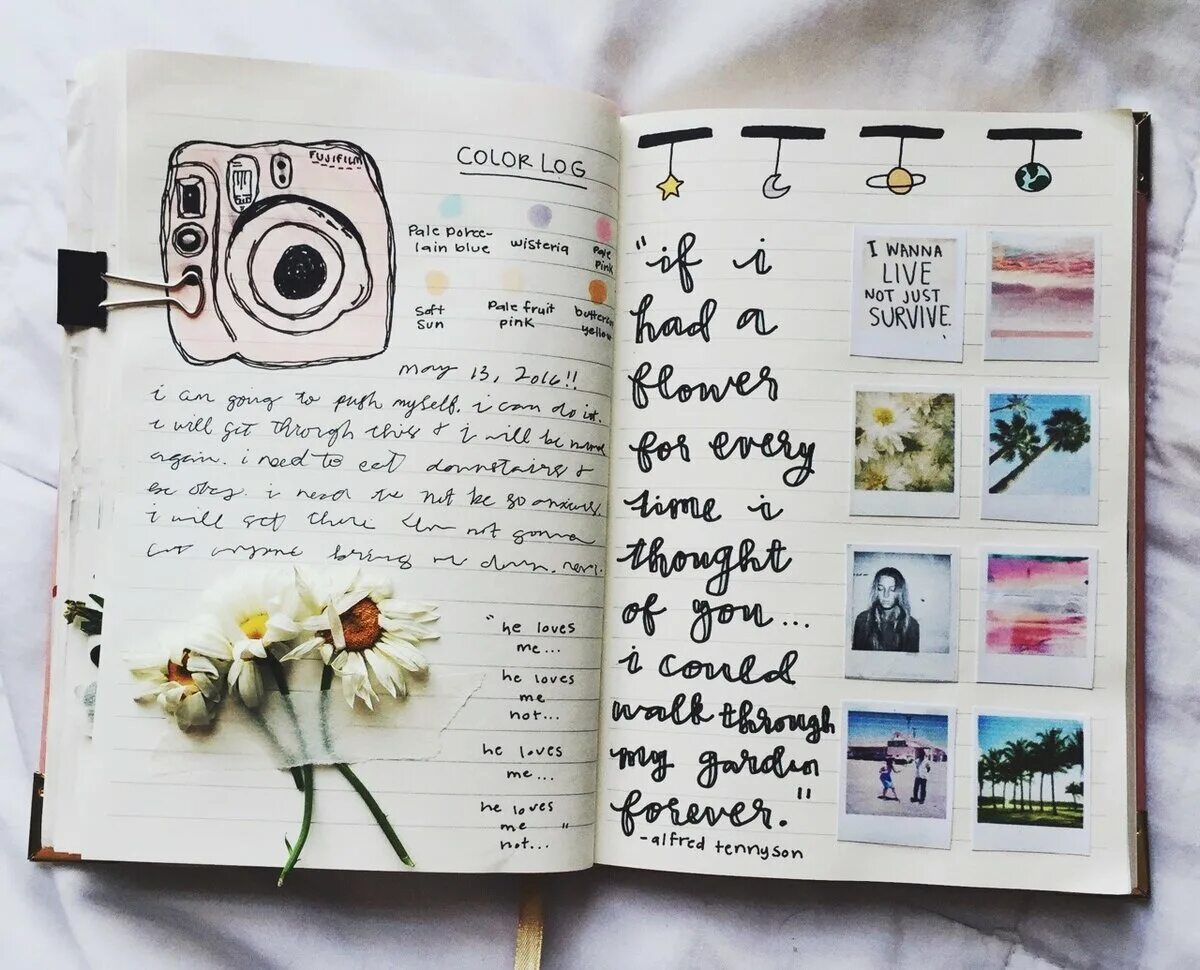 FUJIFILM
COLOR LOG
Pale porce-
lain blue
wisteria
Pale
Pink
Soft
Sun
Pale fruit
pink
yellow
may 13, 2016!!
i am going to push myself. i can do it.
i will get through this & i will be normal
again. i need to eat downstairs &
be okay. i need to not be so anxious.
i will get there & im not gonna
let anyone bring me down. never.
"he loves
me...
he loves
me
not...
he loves
me...
he loves
me
not..."
"if i
had a
flower
for every
time i
thought
of you...
i could
walk through
my garden
forever."
-alfred tennyson
I WANNA
LIVE
NOT JUST
SURVIVE.